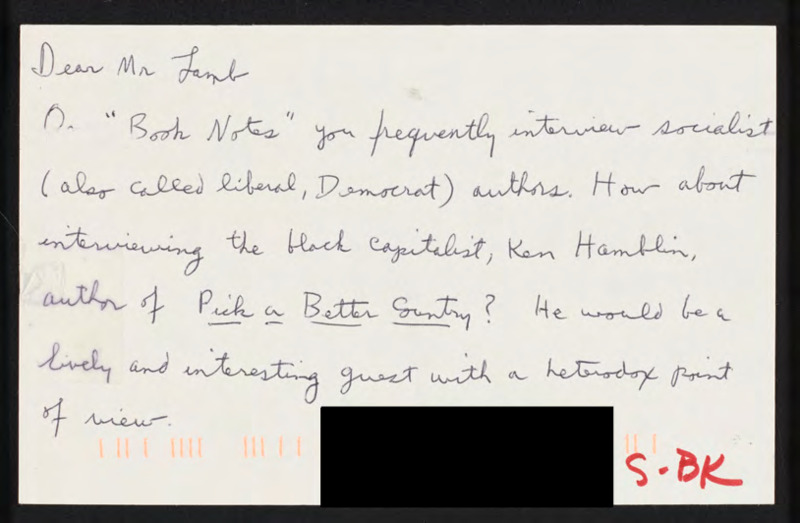 Dear Mr Lamb
On "Book Notes" you frequently interview socialist
(also called liberal, Democrat) authors. How about
interviewing the black capitalist, Ken Hamblin,
author of Pick a Better Country? He would be a
lively and interesting guest with a heterodox point
of view.
S-BK